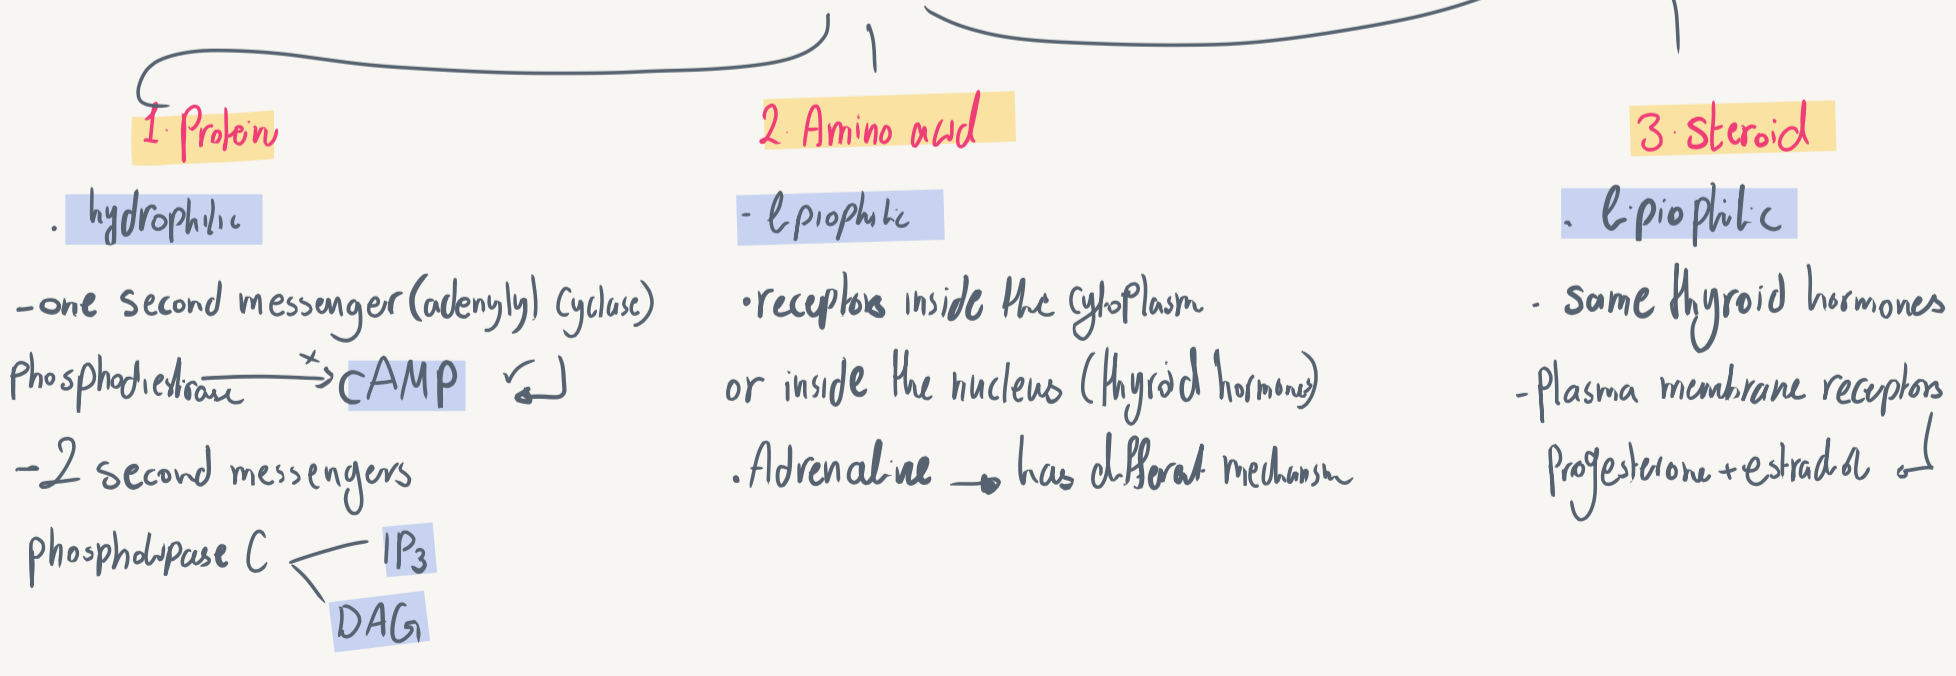 1. Protein
. hydrophilic
- one second messenger (adenylyl cyclase)
phosphodiestrase x cAMP
- 2 second messengers
phospholipase C IP3
DAG
2. Amino acid
- lipiophilic
. receptors inside the cytoplasm
or inside the nucleus (thyroid hormones)
. Adrenaline → has different mechanism
3. Steroid
. lipiophilic
. same thyroid hormones
- Plasma membrane receptors
Progesterone + estradiol